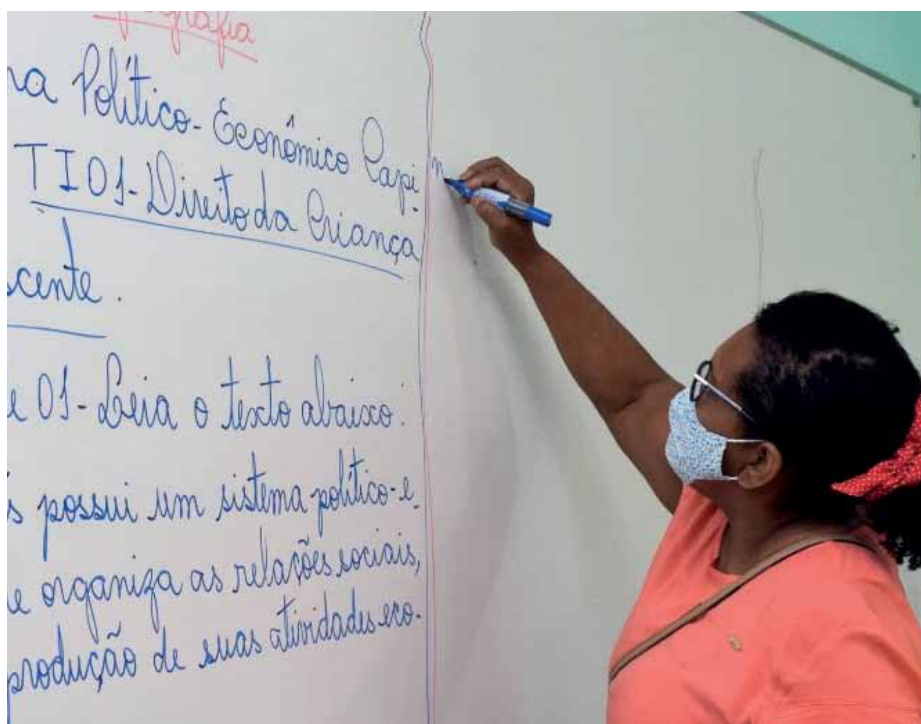 ografia
na Político-Econômico Capi-
TI01-Direito da Criança
scente.
e 01-Leia o texto abaixo:
s possui um sistema político-e
e organiza as relações sociais,
produção de suas atividades eco-
n